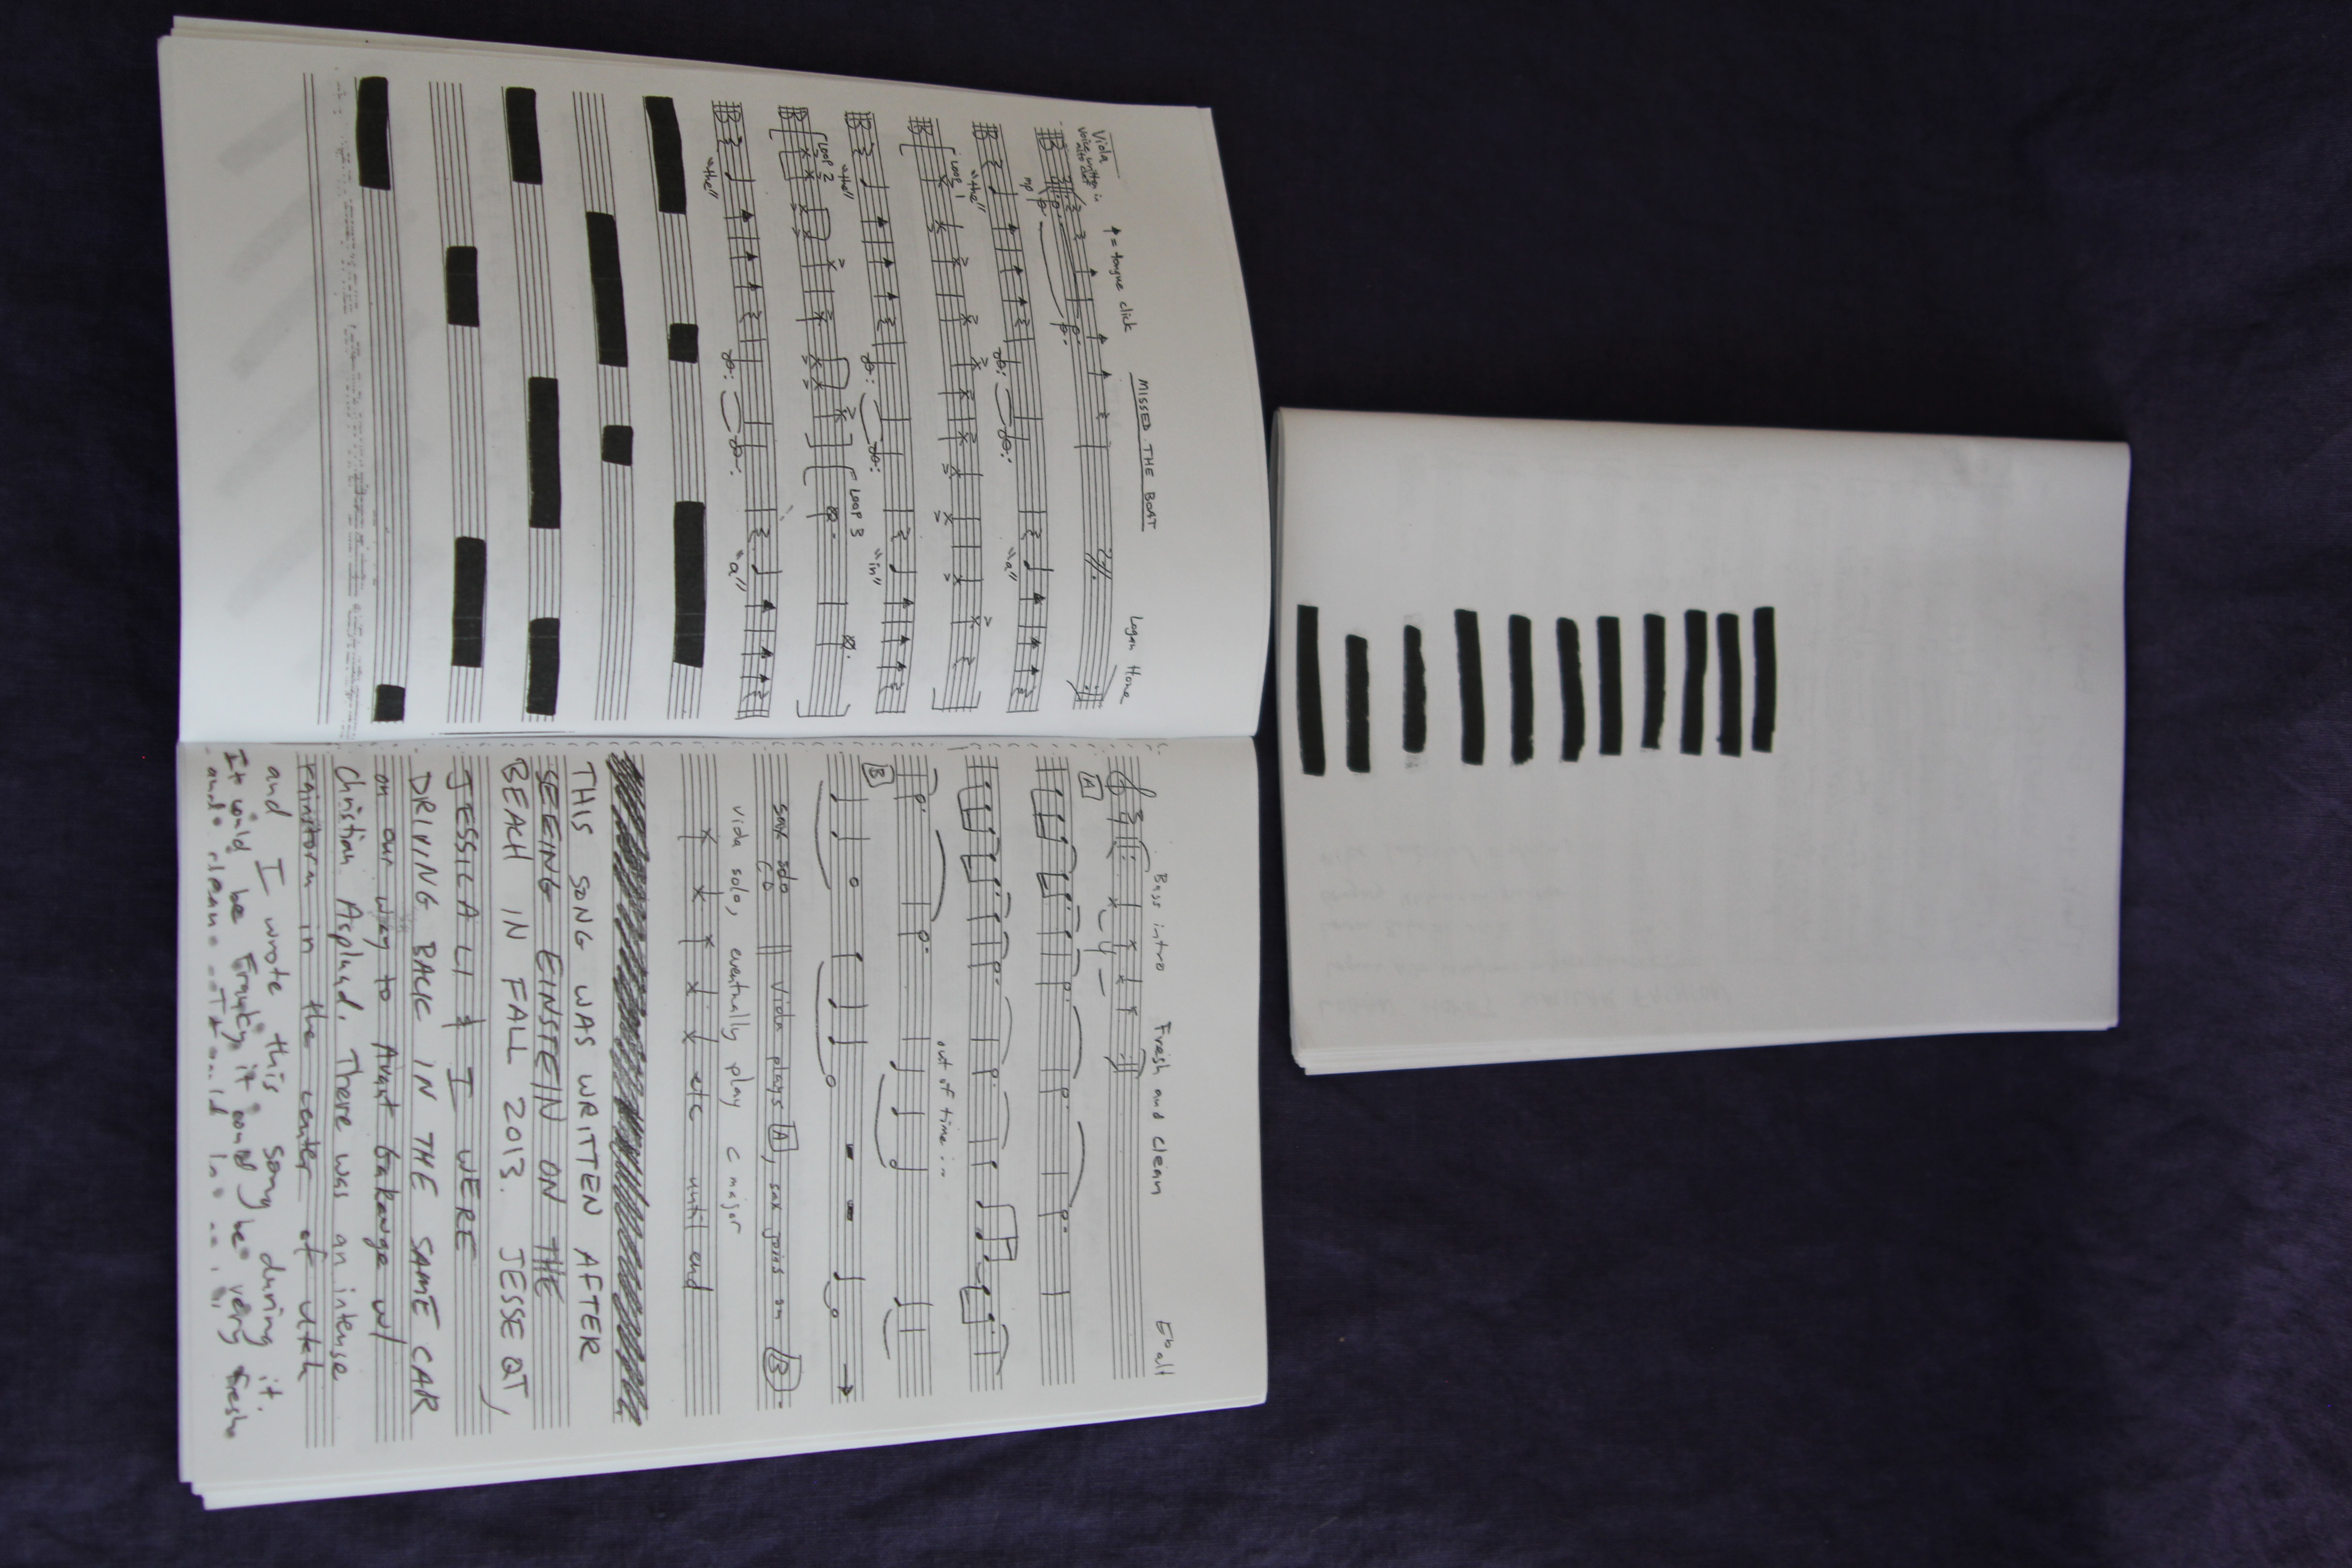 MISSED THE BOAT
Logan Hone
Viola
voice written in
alto clef
= tongue click
mp
"the"
"a"
Loop 1
"the"
"in"
Loop 2
Loop 3
"the"
"a"
Bass intro
Fresh and Clean
Eb alt
A
4
out of time...
B
sax solo
Viola plays A, sax joins on B
viola solo, eventually play C major
etc until end
THIS SONG WAS WRITTEN AFTER
SEEING EINSTEIN ON THE
BEACH IN FALL 2013. JESSE QT,
JESSICA LI & I WERE
DRIVING BACK IN THE SAME CAR
on our way to Avant GaRawge w/
Christian Asplund. There was an intense
rainstorm in the center of utah
and I wrote this song during it.
It would be very fresh